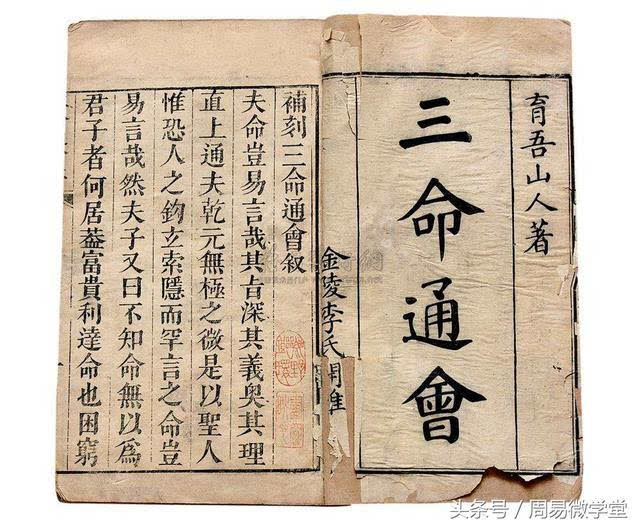 育吾山人著
三命通會
金陵李氏
補刻三命通會叙
夫命豈易言哉其旨深其義奥其理
直上通夫乾元無極之微是以聖人
惟恐人之鈎玄索隱而罕言之命豈
易言哉然夫子又曰不知命無以爲
君子者何居葢富貴利達命也困窮
头条号／周易微学堂